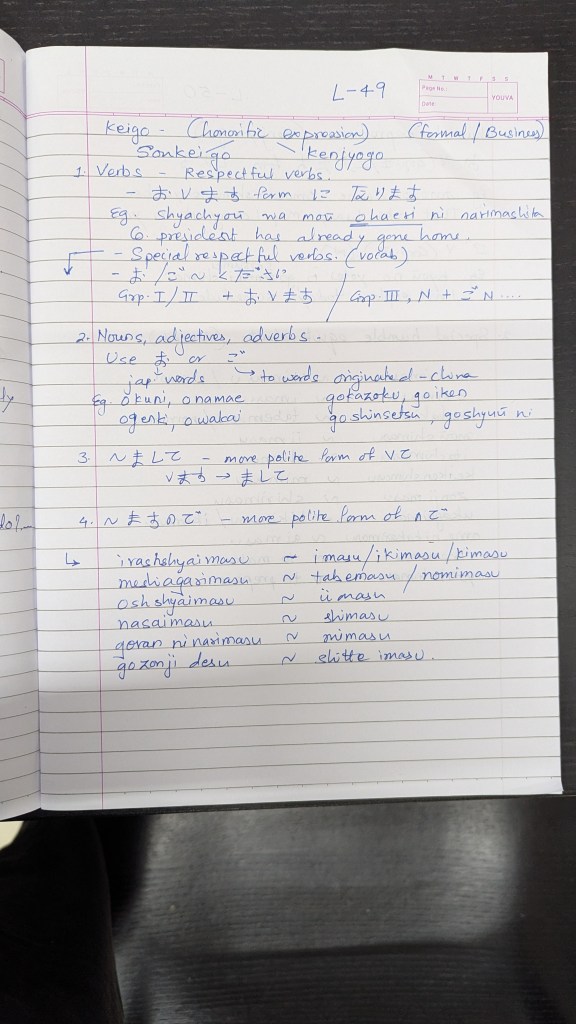 L-49
M T M T F S S
Page No.:
YOUVA
Date:
Keigo - (honorific expression) (formal / Business)
Sonkeigo kenjyogo
1. Verbs - Respectful verbs.
- お V ます form に なります
Eg. Shyachyoū wa moū ohaeri ni narimashita
Co. president has already gone home.
- Special respectful verbs. (vocab)
- お / ご ~ ください
Grp. I / II + お V ます / Grp. III, N + ご N ....
2. Nouns, adjectives, adverbs.
Use お or ご
jap words to words originated - China
Eg. okuni, onamae gokazoku, goiken
ogenki, owakai goshinsetsu, goshyuū ni
3. ~ まして - more polite form of V て
V ます → まして
4. ~ ますので - more polite form of ので
irashshyaimasu ~ imasu / ikimasu / kimasu
meshiagarimasu ~ tabemasu / nomimasu
oshshyaimasu ~ iimasu
nasaimasu ~ shimasu
goran ni narimasu ~ mimasu
gozonji desu ~ shitte imasu.